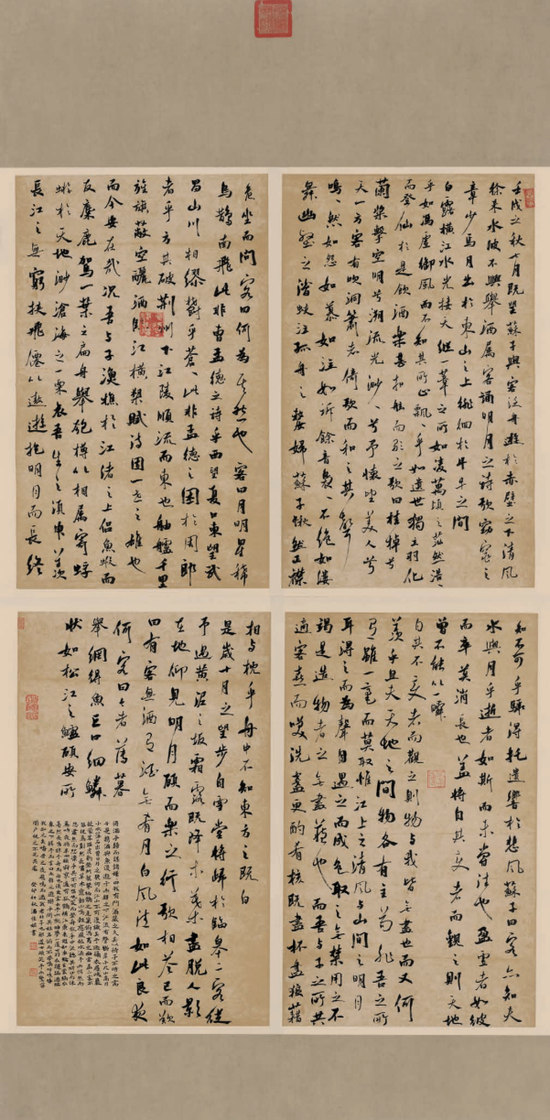 壬戌之秋七月既望蘇子與客泛舟遊於赤壁之下清風
徐来水波不興舉酒属客誦明月之詩歌窈窕之
章少焉月出於東山之上徘徊於斗牛之間
白露横江水光接天縱一葦之所如凌萬頃之茫然浩〻
乎如馮虚御風而不知其所止飘〻乎如遺世獨立羽化
而登仙於是飲酒樂甚扣舷而歌之歌曰桂棹兮
蘭槳擊空明兮溯流光渺〻兮予懷望美人兮
天一方客有吹洞簫者倚歌而和之其聲
嗚〻然如怨如慕如泣如訴餘音裊〻不絶如縷
舞幽壑之潛蛟泣孤舟之嫠婦蘇子愀然正襟
危坐而問客曰何為其然也客曰月明星稀
烏鵲南飛此非曹孟德之詩乎西望夏口東望武
昌山川相繆鬱乎蒼〻此非孟德之困於周郎
者乎方其破荆州下江陵順流而東也舳艫千里
旌旗蔽空釃酒臨江横槊賦詩固一世之雄也
而今安在哉况吾與子漁樵於江渚之上侣魚蝦而
友麋鹿駕一葉之扁舟舉匏樽以相属寄蜉
蝣於天地渺滄海之一粟哀吾生之須臾羡
長江之無窮挟飛僊以遨遊抱明月而長終
知不可乎驟得托遺響於悲風蘇子曰客亦知夫
水與月乎逝者如斯而未嘗往也盈虚者如彼
而卒莫消長也蓋將自其變者而觀之則天地
曾不能以一瞬
自其不變者而觀之則物與我皆無盡也而又何
羡乎且夫天地之間物各有主苟非吾之所
有雖一毫而莫取惟江上之清風與山間之明月
耳得之而為聲目遇之而成色取之無禁用之不
竭是造物者之無盡藏也而吾與子之所共
適客喜而笑洗盞更酌肴核既盡杯盤狼藉
相與枕乎舟中不知東方之既白
是歲十月之望步自雪堂將歸於臨皋二客從
予過黄泥之坂霜露既降木葉盡脱人影
在地仰見明月顧而樂之行歌相答已而歎
曰有客無酒有酒無肴月白風清如此良夜
何客曰今者薄暮
舉網得魚巨口細鱗
狀如松江之鱸顧安所